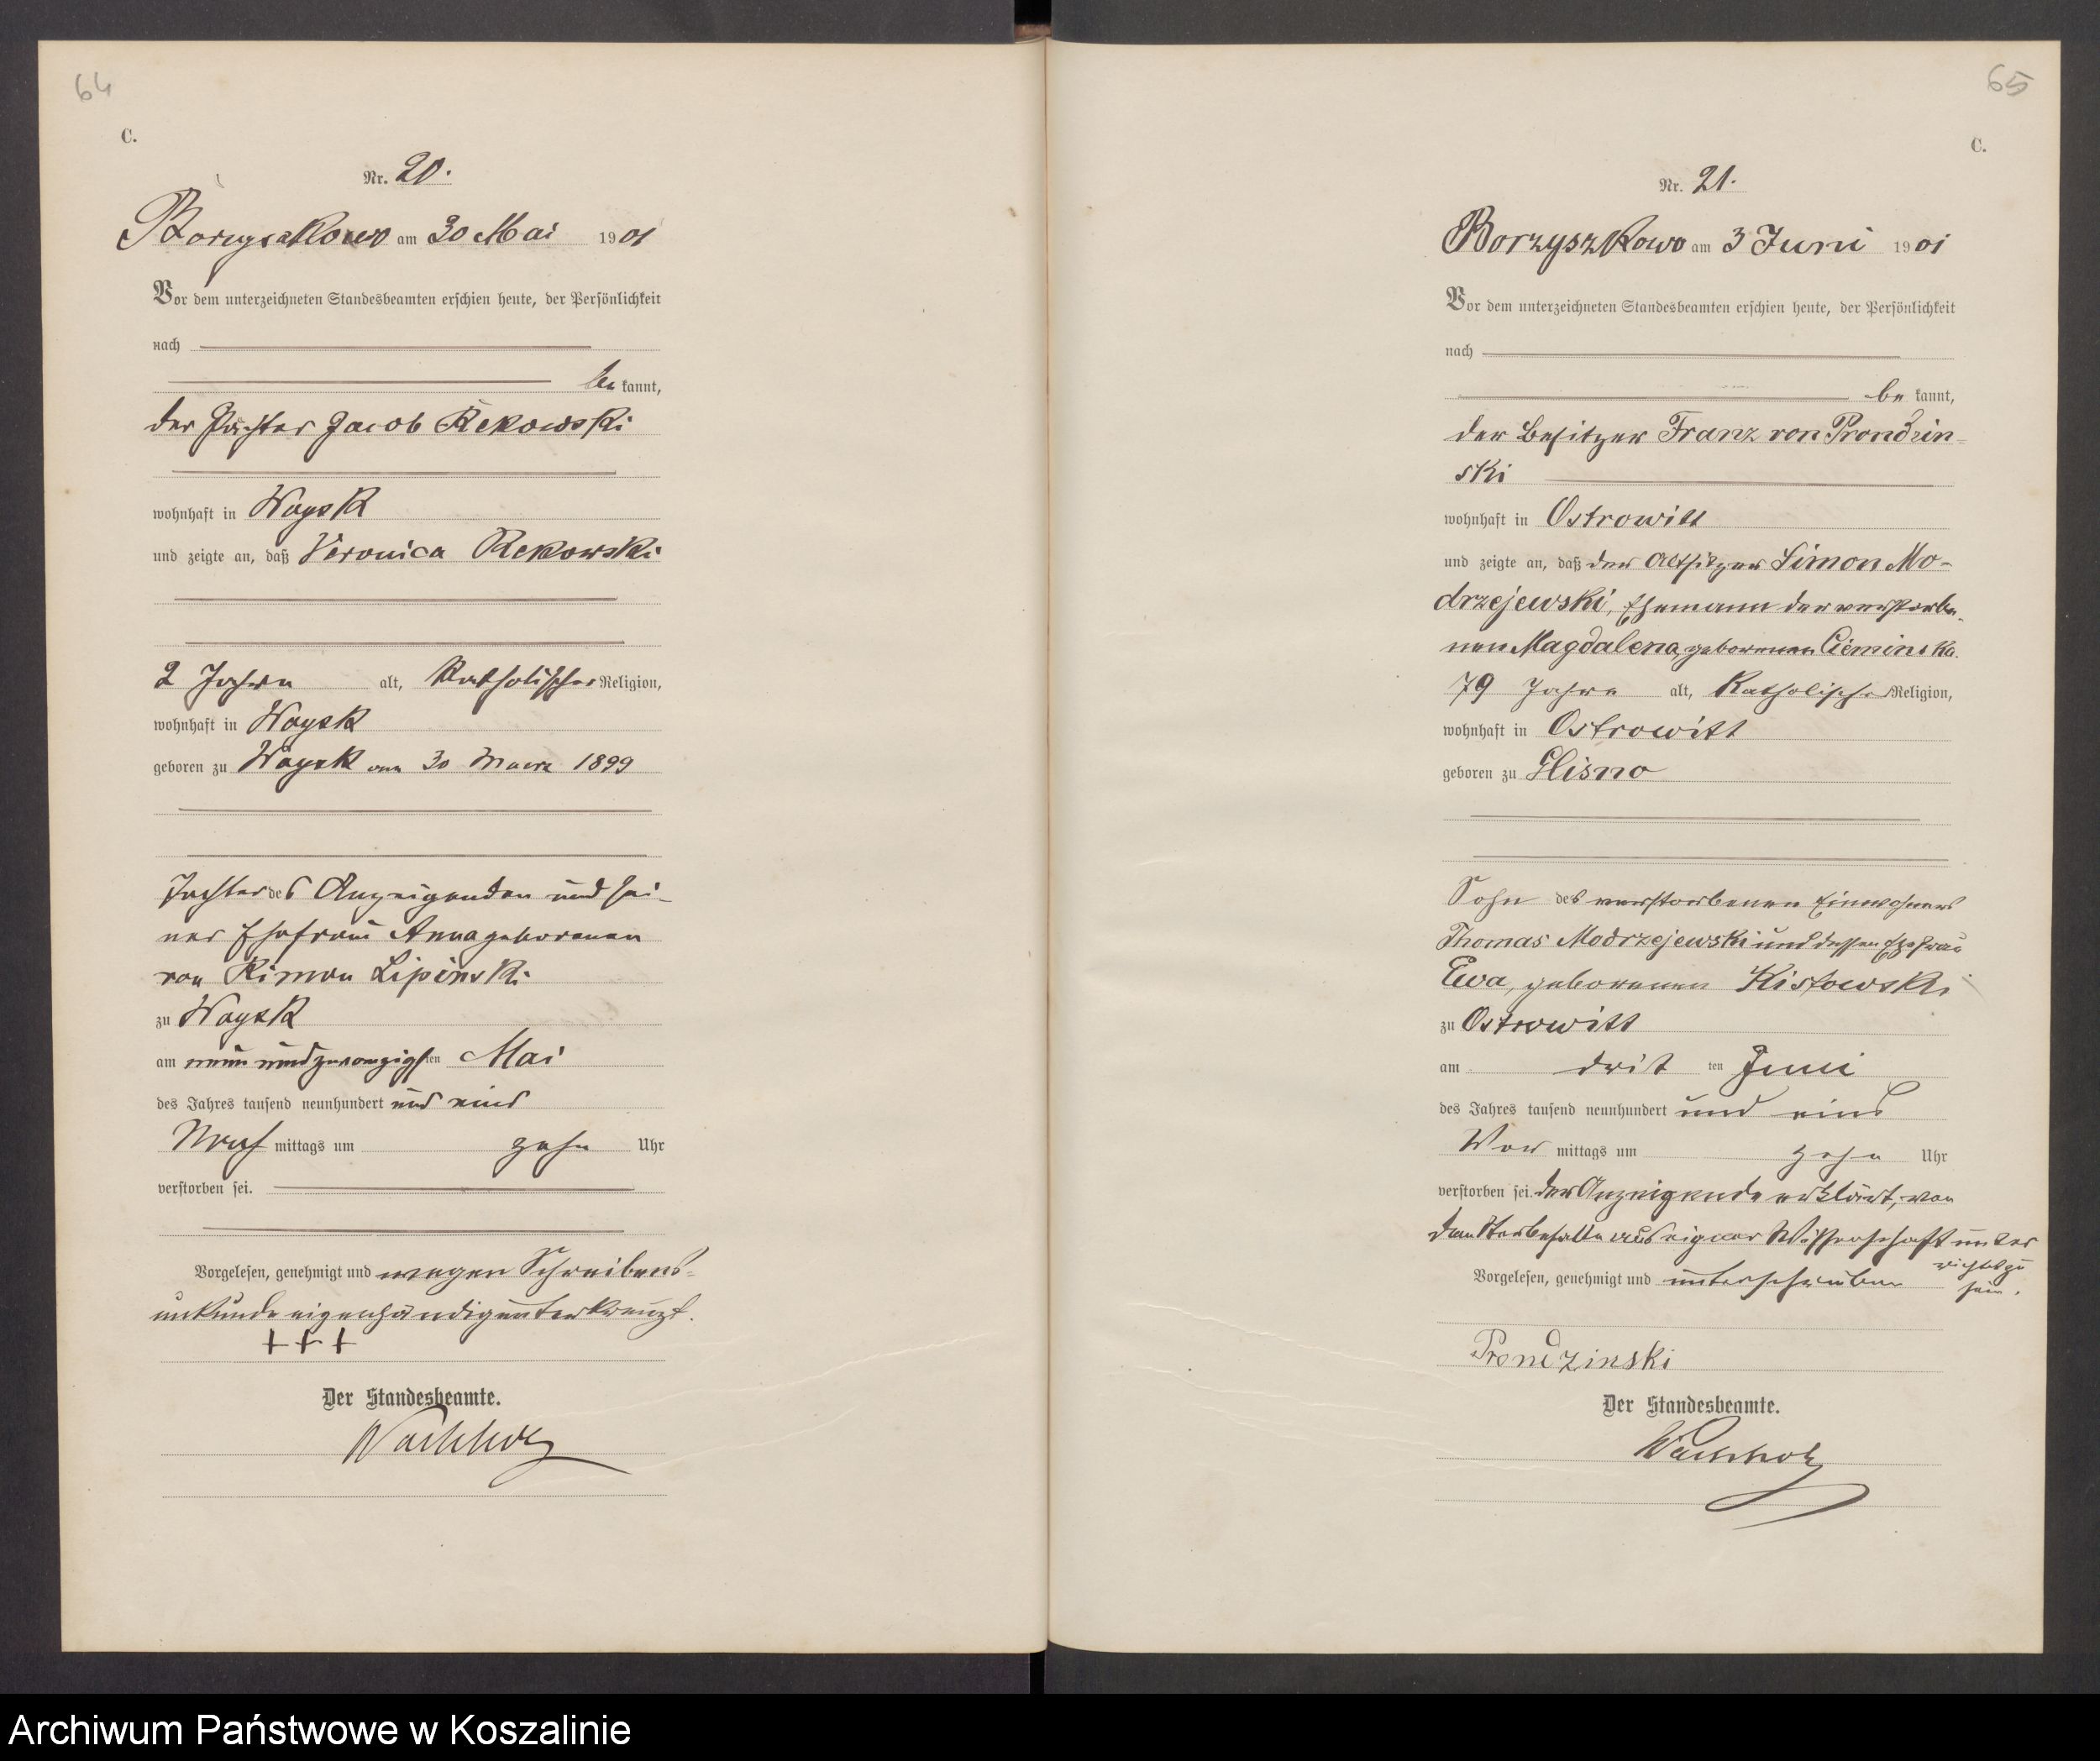 64
C.
Nr. 20.
Borzyszkowo am 30 Mai 1901
Vor dem unterzeichneten Standesbeamten erschien heute, der Persönlichkeit
nach
be kannt,
der Pächter Jacob Rekowski
wohnhaft in Woysk
und zeigte an, daß Veronica Rekowski
2 Jahre alt, Katholischer Religion,
wohnhaft in Woysk
geboren zu Woysk am 30 Maerz 1899
Tochter des Anzeigenden und sei-
ner Ehefrau Anna geborenen
von Kimon Lipinski
zu Woysk
am neun und zwanzigsten Mai
des Jahres tausend neunhundert und eins
Nach mittags um zehn Uhr
verstorben sei.
Vorgelesen, genehmigt und wegen Schreibens-
unkunde eigenhändig unterkreuzt.
+++
Der Standesbeamte.
Wachholz
65
C.
Nr. 21.
Borzyszkowo am 3 Juni 1901
Vor dem unterzeichneten Standesbeamten erschien heute, der Persönlichkeit
nach
be kannt,
der Besitzer Franz von Prondzin-
ski
wohnhaft in Ostrowitt
und zeigte an, daß der Altsitzer Simon Mo-
drzejewski, Ehemann der verstorbe-
nen Magdalena, geborenen Cieminska.
79 Jahre alt, Katholischer Religion,
wohnhaft in Ostrowitt
geboren zu Glisno
Sohn des verstorbenen Einwohners
Thomas Modrzejewski und dessen Ehefrau
Ewa, geborenen Kistowski
zu Ostrowitt
am drit ten Juni
des Jahres tausend neunhundert und eins
Vor mittags um zehn Uhr
verstorben sei. der Anzeigende erklärt, von
dem Sterbefalle aus eigner Wissenschaft unter
richtet zu
sein.
Vorgelesen, genehmigt und unterschrieben
Prondzinski
Der Standesbeamte.
Wachholz
Archiwum Państwowe w Koszalinie